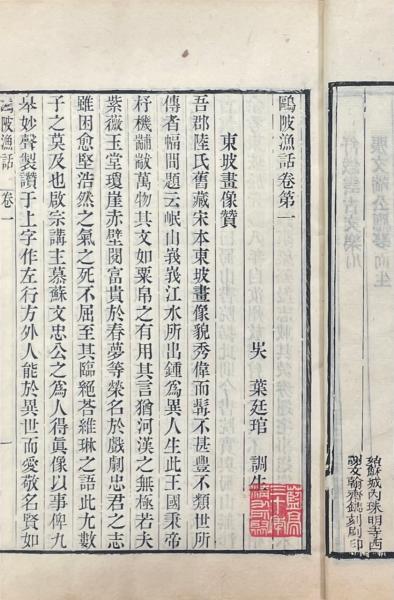 姑蘇城內珠明寺西
謝文翰齋鐫刻刷印
鷗陂漁話卷第一
吳 葉廷琯 調生
東坡畫像贊
吾郡陸氏舊藏宋本東坡畫像貌秀偉而髯不甚豐不類世所
傳者幅間題云岷山峩峩江水所出鍾爲異人生此王國秉帝
杼機黼黻萬物其文如粟帛之有用其言猶河漢之無極若夫
紫薇玉堂瓊崖赤壁閱富貴於春夢等榮名於戲劇忠君之志
雖困愈堅浩然之氣之死不屈至其臨絕荅維琳之語此尤數
子之莫及也啟宗講主慕蘇文忠公之爲人得眞像以事俾九
皋妙聲製讚于上字作左行方外人能於異世而愛敬名賢如
陂漁話 卷一 一